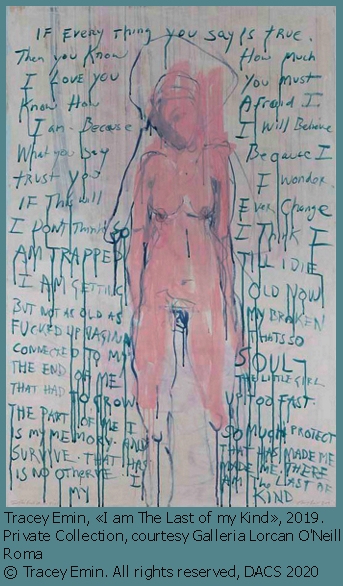 IF EVERY THING YOU SAY IS TRUE.
Then you Know How Much
I LOVE YOU You Must
Know How Afraid I
I am - Because I Will Believe
What you say Because I
trust you I Wonder
IF This will Ever Change
I DONT Think SO I Think I
AM TRAPPED TILL I DIE
I AM GETTING OLD NOW
BUT NOT AS OLD AS MY BROKEN
FUCKED UP VAGINA THATS SO
CONNECTED TO MY SOUL -
THE END OF ME THE LITTLE GIRL
THAT HAD TO GROW UP TOO FAST.
THE PART OF ME I SO MUCH PROTECT
IS MY MEMORY. AND THAT HAS MADE ME
SURVIVE. THAT HAS MADE ME. THERE
IS NO I AM THE LAST OF
MY KIND
Tracey Emin, «I am The Last of my Kind», 2019.
Private Collection, courtesy Galleria Lorcan O'Neill
Roma
© Tracey Emin. All rights reserved, DACS 2020